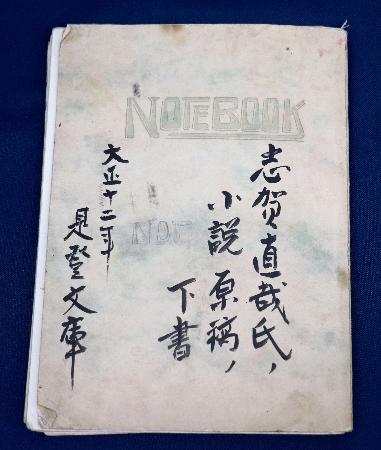 NOTEBOOK
志賀直哉氏,
小説原稿,
下書
NOT
大正十二年
是登文庫